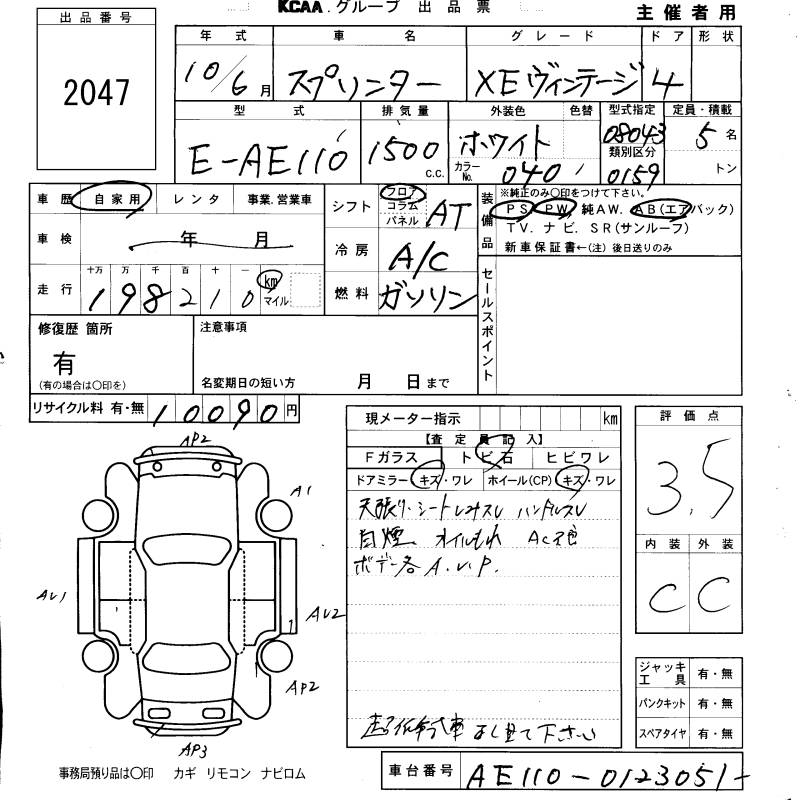 KCAA.グループ 出品票
主催者用
出品番号
2047
年式 車名 グレード ドア 形状
10/6月 スプリンター XEヴィンテージ 4
型式 排気量 外装色 色替 型式指定 定員・積載
E-AE110 1500 c.c. ホワイト 08043 5名
カラーNo. 040 類別区分 0159 トン
車歴 自家用 レンタ 事業.営業車
シフト フロア コラム パネル AT
装備品 ※純正のみ○印をつけて下さい。
PS. PW. 純AW. AB(エアバック)
TV. ナビ. SR(サンルーフ)
新車保証書←(注) 後日送りのみ
車検 年 月
冷房 A/C
走行 十万 万 千 百 十 一
198210 km マイル
燃料 ガソリン
セールスポイント
修復歴 箇所
有
(有の場合は○印を)
注意事項
名変期日の短い方 月 日まで
リサイクル料 有・無 10090円
現メーター指示 km
【査定員記入】
Fガラス トビ石 ヒビワレ
ドアミラー キズ・ワレ ホイール(CP) キズ・ワレ
天張り・シート ハンドルスレ
オイルもれ
ボデー各A.U.P.
下さい
評価点
3.5
内装 外装
C C
AP2
A1
AU1
AU2
AP2
AP3
ジャッキ工具 有・無
パンクキット 有・無
スペアタイヤ 有・無
事務局預り品は○印 カギ リモコン ナビロム
車台番号 AE110-0123051-